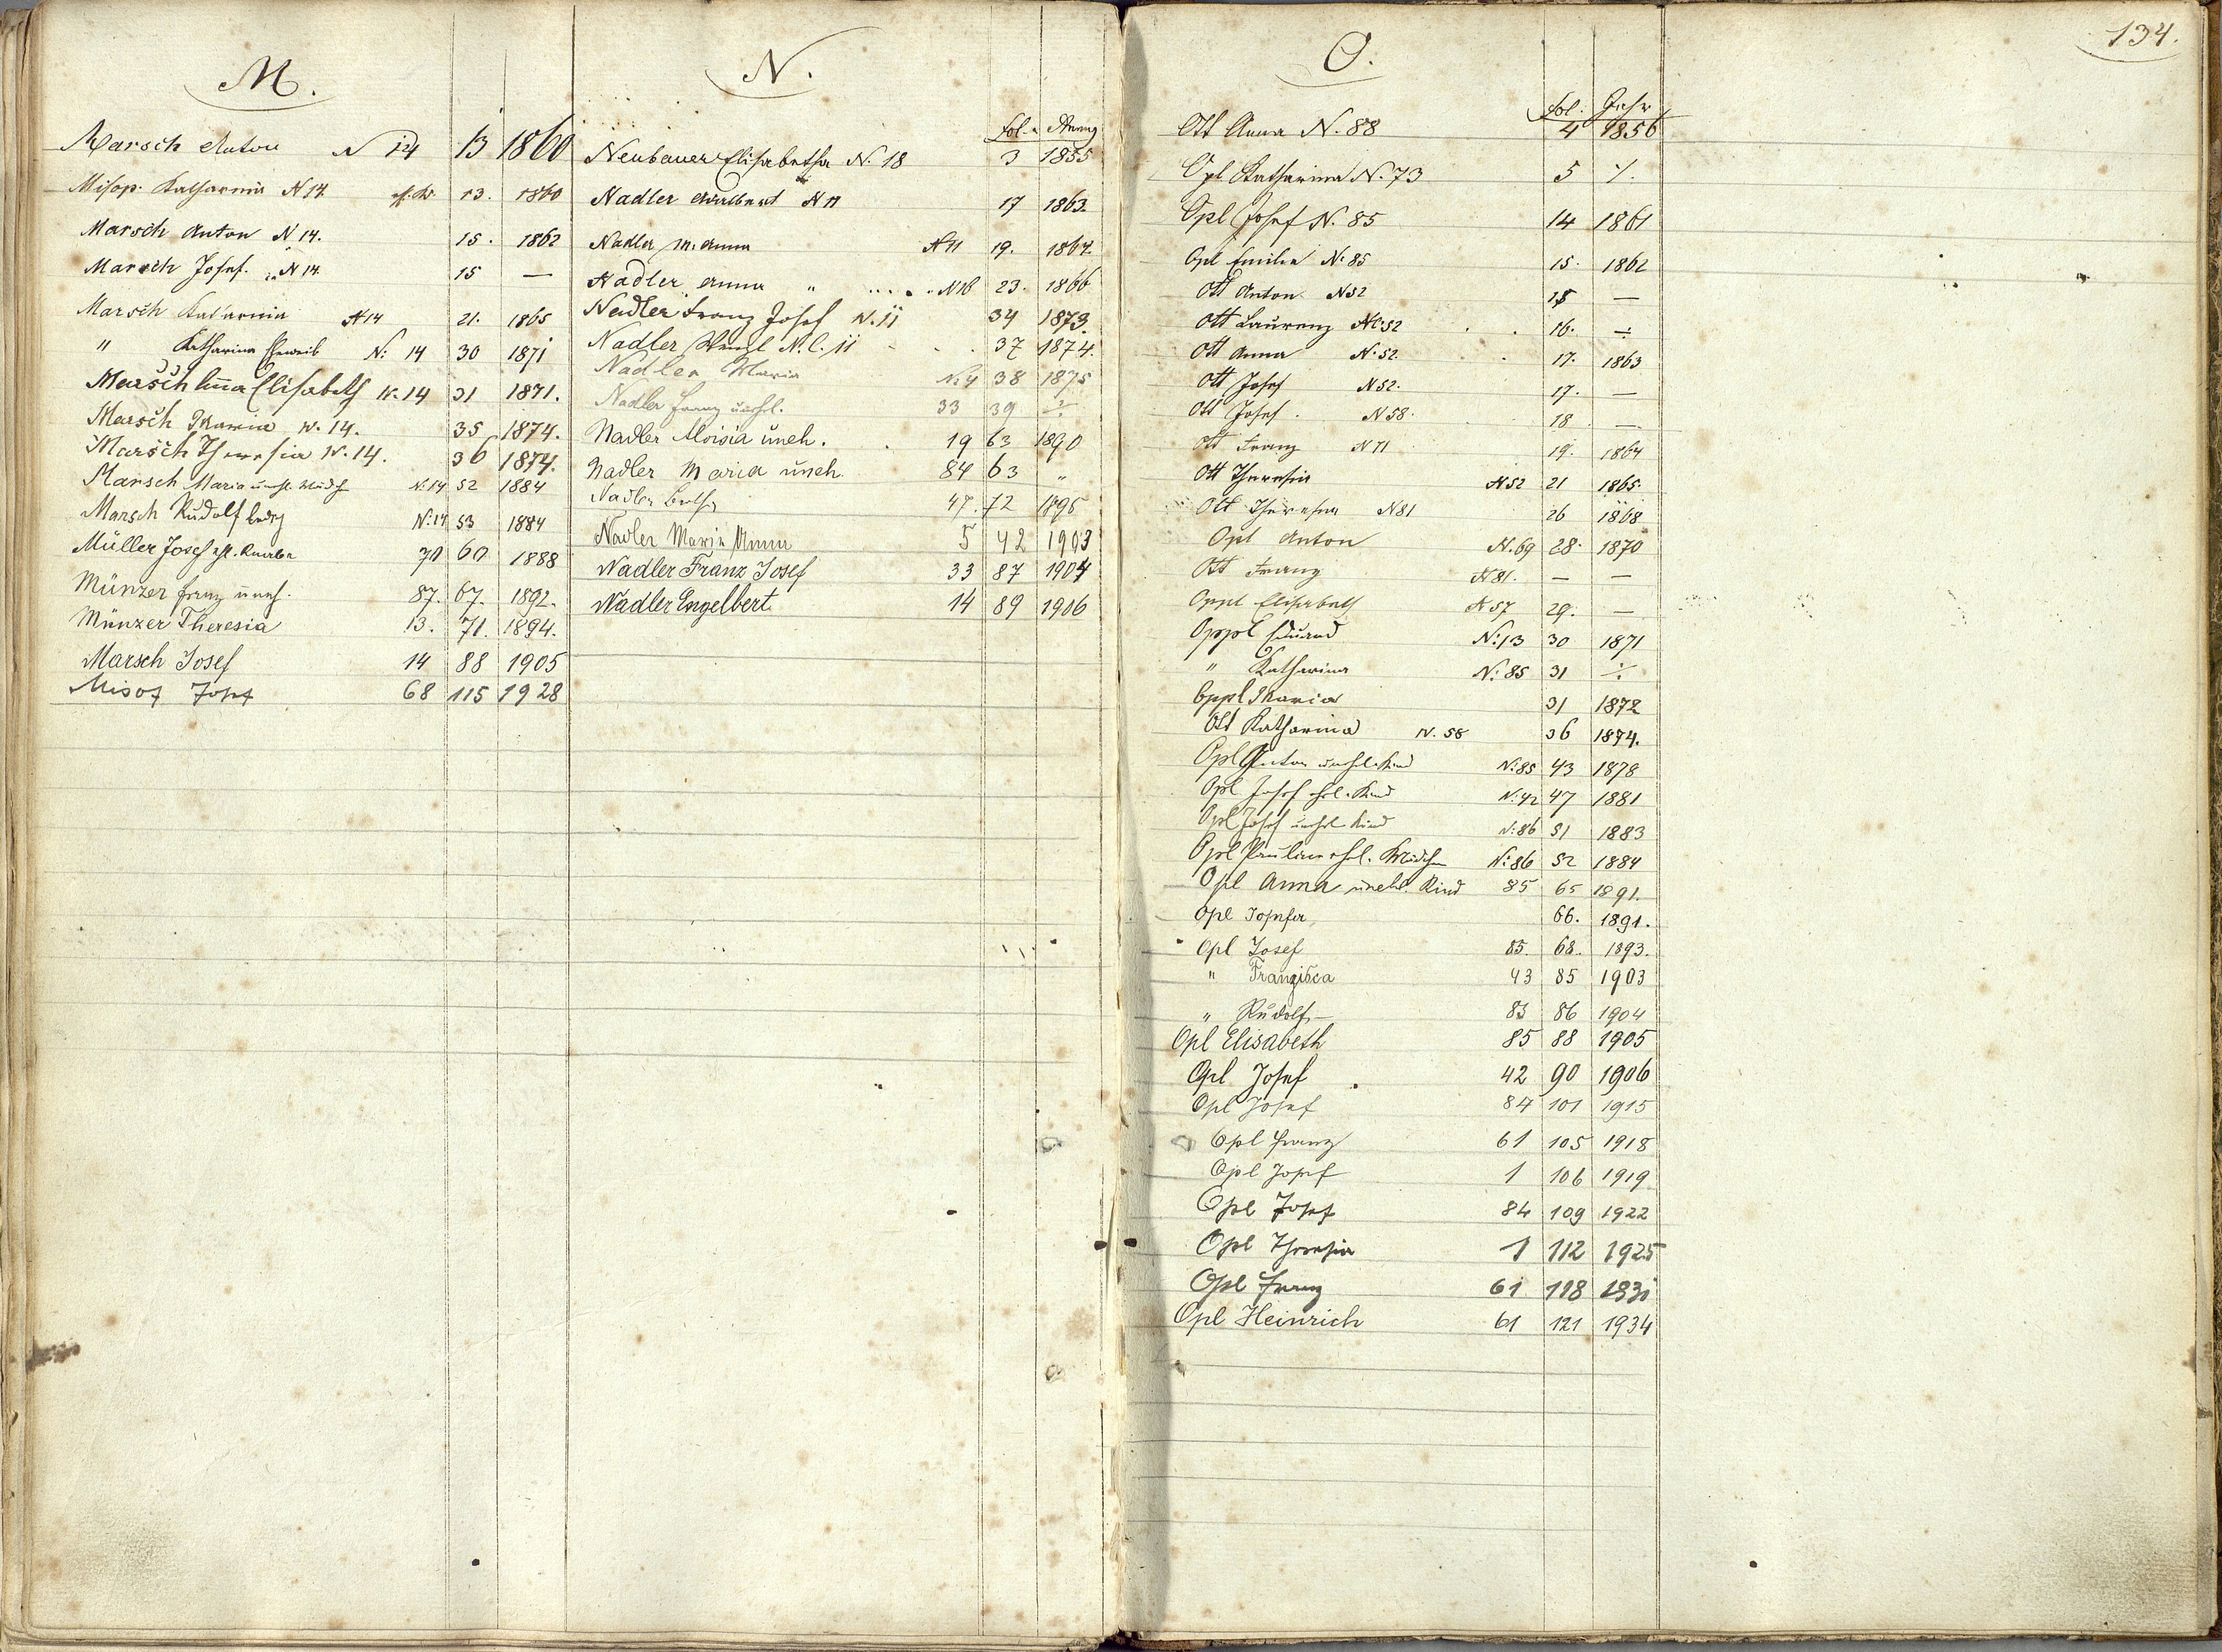 M.
Marsch Anton N 14 13 1860
Misop. Katharina N 14. 13. 1860
Marsch Anton N 14. 15. 1862
Marsch Josef. N 14. 15 —
Marsch Katharina N 14 21. 1865
" Katharina Eheweib N: 14 30 1871
Marsch Anna Elisabeth N. 14 31 1871.
Marsch Maria N. 14. 35 1874.
Marsch Theresia N. 14. 36 1874.
Marsch Maria N: 14 52 1884
Marsch Rudolf N: 14 53 1884
Müller Josef ehl. Knabe 70 60 1888
Münzer Franz uneh. 87. 67. 1892.
Münzer Theresia 13. 71. 1894.
Marsch Josef 14 88 1905
Misof Josef 68 115 1928
N.
Fol.
Neubauer Elisabetha N. 18 3 1855
Nadler Adalbert N 11 17 1863.
Nadler M. Anna N 11 19. 1864.
Nadler Anna " N 16 23. 1866
Nadler Franz Josef N. 11 34 1873.
Nadler Wenzl N. C. 11 37 1874.
Nadler Maria No 4 38 1875
Nadler Franz unehl. 33 39 ÷
Nadler Aloisia uneh. 19 63 1890
Nadler Maria uneh. 84 63 "
Nadler 47. 72 1895
Nadler Maria Anna 5 42 1903
Nadler Franz Josef 33 87 1904
Nadler Engelbert 14 89 1906
134.
O.
Fol. Jahr
Ott Anna N. 88 4 1856
Opl Katharina N. 73 5 ٪.
Opl Josef N. 85 14 1861
Opl Emilia No 85 15. 1862
Ott Anton N 52 15 —
Ott Laurenz NC: 52 16. ÷
Ott Anna N. 52. 17. 1863
Ott Josef N 52. 17. —
Ott Josef. N 58. 18 —
Ott Franz N 71 19. 1864
Ott Theresia N 52 21 1865.
Ott Theresia N 81 26 1868
Opl Anton N. 69 28. 1870
Ott Franz N 81. — —
Oppl Elisabeth N 57 29. —
Oppl Eduard N: 13 30 1871
" Katharina N: 85 31 ÷
Oppl Maria 31 1872
Ott Katharina N. 58 36 1874.
Opl Anton unehl. Kind N: 85 43 1878
Opl Josef ehl. Kind N: 42 47 1881
Opl Josef unehl. Kind N: 86 51 1883
Opl Pauline ehl. Mädchen N: 86 52 1884
Opl Anna unehel. Kind 85 65 1891.
Opl Josefa 66. 1891.
Opl Josef 85. 68. 1893.
" Franziska 43 85 1903
" Rudolf 83 86 1904
Opl Elisabeth 85 88 1905
Opl Josef 42 90 1906
Opl Josef 84 101 1915
Opl Franz 61 105 1918
Opl Josef 1 106 1919
Opl Josef 84 109 1922
Opl Theresia 1 112 1925
Opl Franz 61 118 1931
Opl Heinrich 61 121 1934